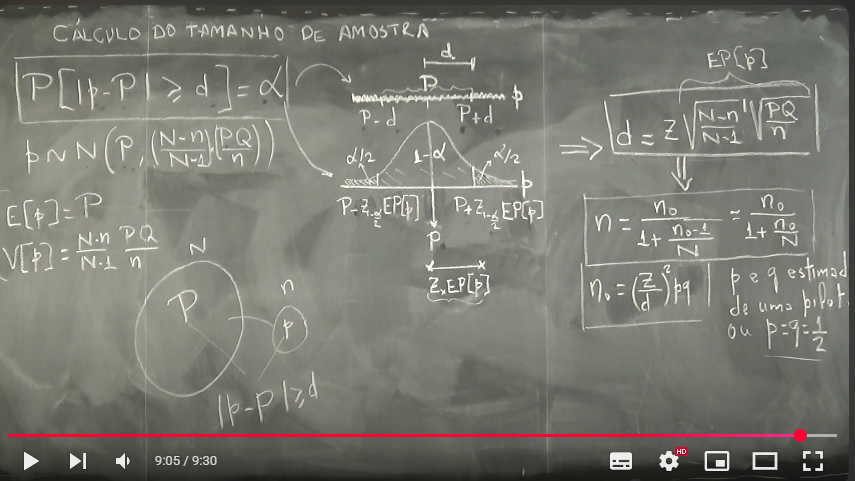 CÁLCULO DO TAMANHO DE AMOSTRA
P[|p-P| ⩾ d] = α
p ~ N(P, (N-n/N-1)(PQ/n))
E[p] = P
V[p] = N-n/N-1 PQ/n
N
P
n
p
|p-P| ⩾ d
d
P
p
P-d
P+d
α/2
1-α
α/2
p
P-Z₁₋α/2 EP[p]
P+Z₁₋α/2 EP[p]
P
Z×EP[p]
EP[p]
⇒ d = Z √(N-n/N-1) √(PQ/n)
⇓
n = n₀/(1+(n₀-1)/N) ≅ n₀/(1+n₀/N)
n₀ = (Z/d)² pq
p e q estimad
de uma pilot
ou p=q=1/2
9:05 / 9:30
HD